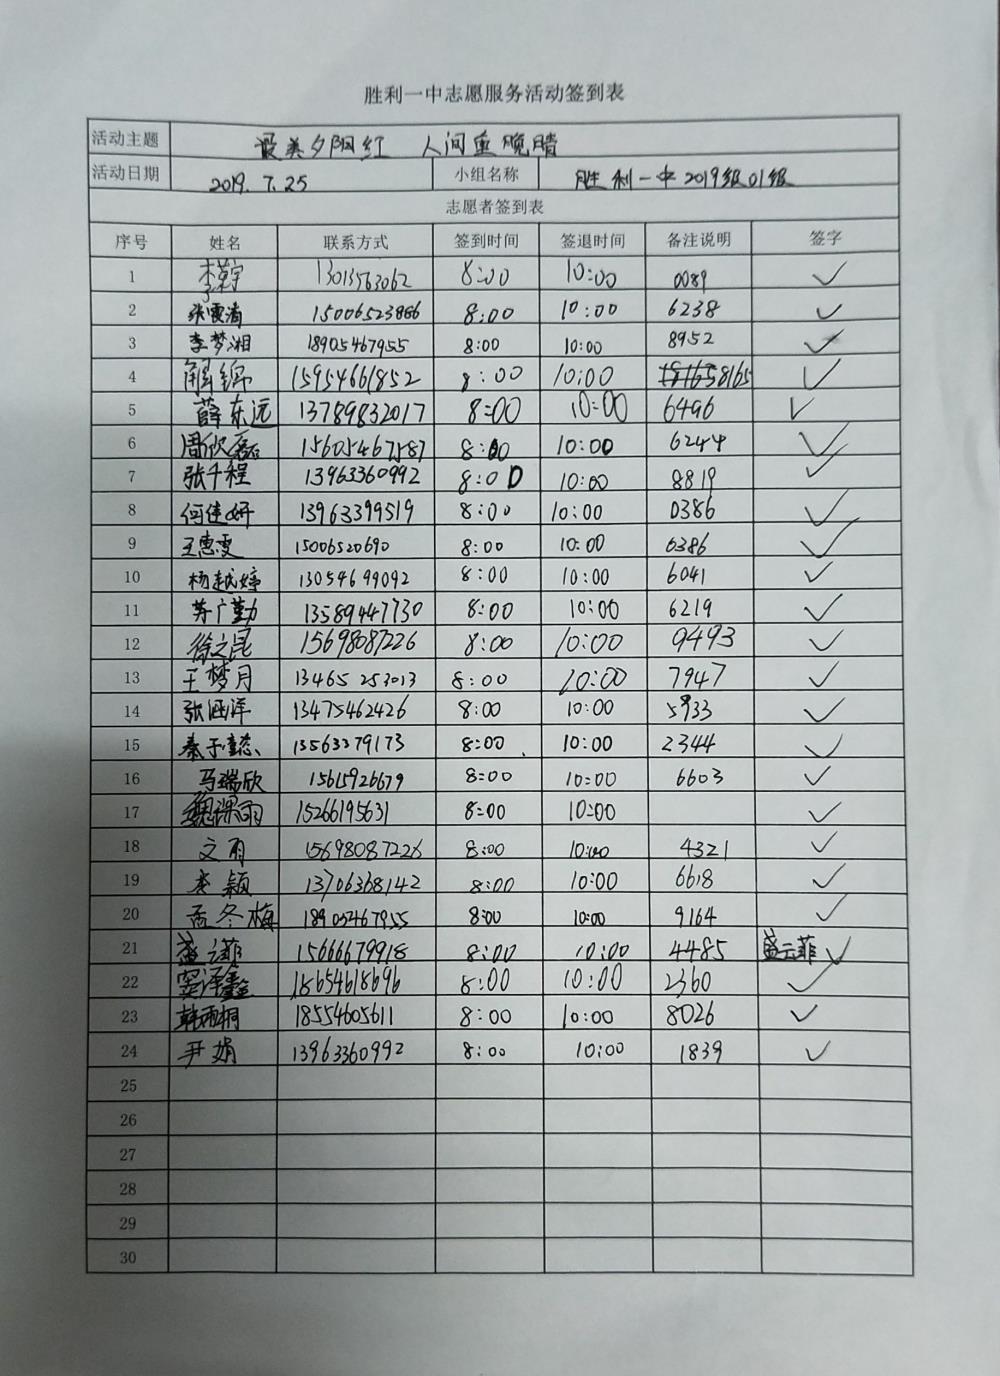 胜利一中志愿服务活动签到表
活动主题 最美夕阳红 人间重晚晴
活动日期 2019.7.25 小组名称 胜利一中2019级01级
志愿者签到表
序号 姓名 联系方式 签到时间 签退时间 备注说明 签字
1 13013563062 8:00 10:00 0089 ✓
2 张霞清 15006523886 8:00 10:00 6238 ✓
3 李梦湘 18905467955 8:00 10:00 8952 ✓
4 解锦 15954661852 8:00 10:00 ✓
5 薛东远 13789832017 8:00 10:00 6496 ✓
6 周欣磊 15605467587 8:00 10:00 6244 ✓
7 张千程 13963360992 8:00 10:00 8819 ✓
8 何佳妍 13963399519 8:00 10:00 0386 ✓
9 王惠雯 15006520690 8:00 10:00 6386 ✓
10 杨越婷 13054699092 8:00 10:00 6041 ✓
11 苏广勤 13589447730 8:00 10:00 6219 ✓
12 徐之昆 15698087226 8:00 10:00 9493 ✓
13 王梦月 13465253013 8:00 10:00 7947 ✓
14 张涵洋 13475462426 8:00 10:00 5933 ✓
15 秦于 13563379173 8:00 10:00 2344 ✓
16 马瑞欣 15615926679 8:00 10:00 6603 ✓
17 魏课雨 15266195631 8:00 10:00 ✓
18 文雨 15698087226 8:00 10:00 4321 ✓
19 李颖 13706368142 8:00 10:00 6618 ✓
20 孟冬梅 18905467955 8:00 10:00 9164 ✓
21 盛云菲 15666679918 8:00 10:00 4485 盛云菲 ✓
22 窦泽鑫 18654618696 8:00 10:00 2360 ✓
23 韩雨桐 18554605611 8:00 10:00 8026 ✓
24 尹娟 13963360992 8:00 10:00 1839 ✓
25
26
27
28
29
30